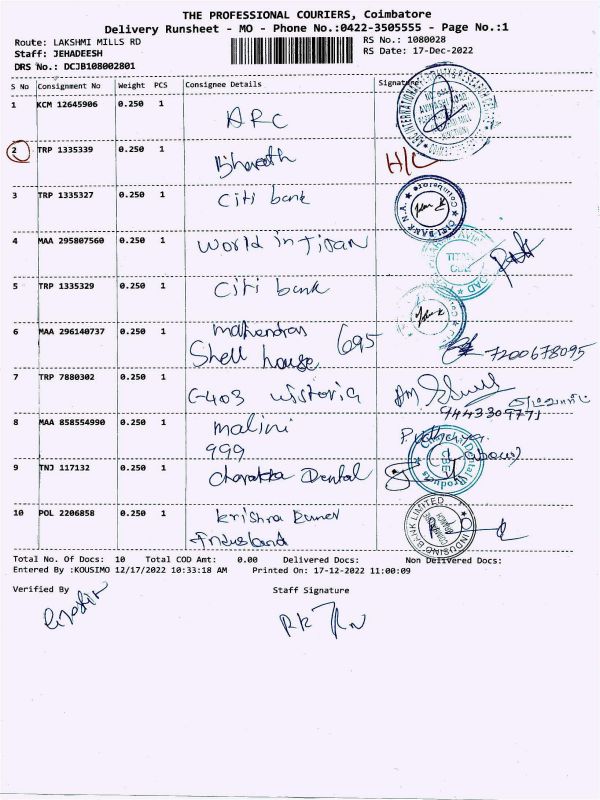 THE PROFESSIONAL COURIERS, Coimbatore
Delivery Runsheet - MO - Phone No.:0422-3505555 - Page No.:1
Route: LAKSHMI MILLS RD RS No.: 1080028
Staff: JEHADEESH RS Date: 17-Dec-2022
DRS No.: DCJB108002801
S No Consignment No Weight PCS Consignee Details Signature
1 KCM 12645906 0.250 1 ARC
2 TRP 1335339 0.250 1 Bharath H/C
3 TRP 1335327 0.250 1 Citi bank
4 MAA 295807560 0.250 1 World in Titan
5 TRP 1335329 0.250 1 Citi bank
6 MAA 296140737 0.250 1 mahendran 695
Shell house 7200678095
7 TRP 7880302 0.250 1 C-403 wistoria
9443309771
8 MAA 858554990 0.250 1 malini
999
9 TNJ 117132 0.250 1 Dental
10 POL 2206858 0.250 1 krishna kumar
Indusland
Total No. Of Docs: 10 Total COD Amt: 0.00 Delivered Docs: Non Delivered Docs:
Entered By :KOUSIMO 12/17/2022 10:33:18 AM Printed On: 17-12-2022 11:00:09
Verified By Staff Signature